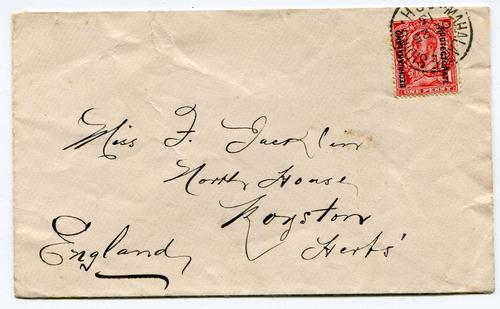 BECHUANALAND PROTECTORATE
ONE PENNY
Miss F. Jacklin
North House
Royston
Herts'
England